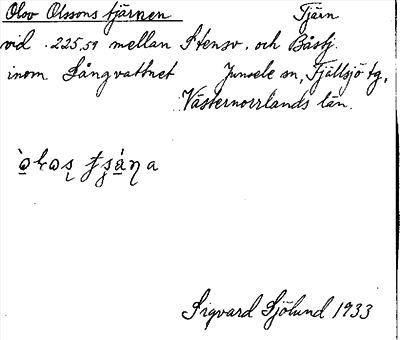 Olov Olssons tjärnen Tjärn
vid . 225,59 mellan Stensv. och Båsbj.
inom Långvattnet Junsele sn, Fjällsjö tg,
Västernorrlands län.
Sigvard Sjölund 1933